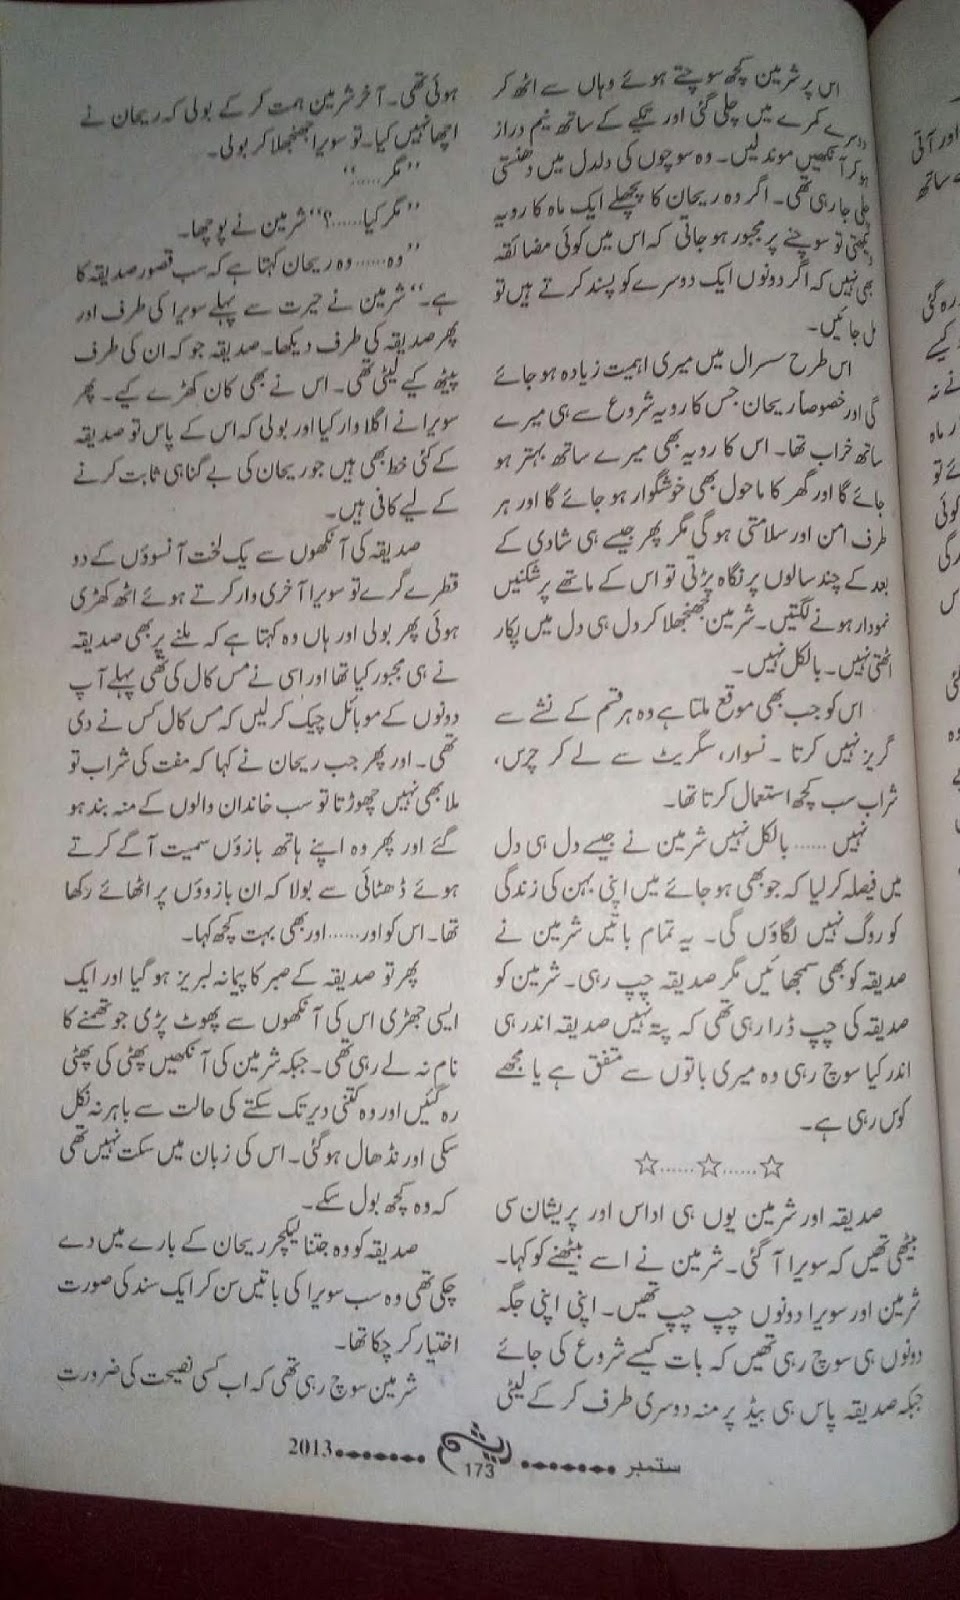 اس پر شرمین کچھ سوچتے ہوئے وہاں سے اٹھ کر
دوسرے کمرے میں چلی گئی اور تکیے کے ساتھ نیم دراز
ہوکر آنکھیں موند لیں۔ وہ سوچوں کی دلدل میں دھنستی
چلی جارہی تھی۔ اگر وہ ریحان کا پچھلے ایک ماہ کا رویہ
دیکھتی تو سوچنے پر مجبور ہوجاتی کہ اس میں کوئی مضائقہ
بھی نہیں کہ اگر دونوں ایک دوسرے کو پسند کرتے ہیں تو
مل جائیں۔
اس طرح سسرال میں میری اہمیت زیادہ ہوجائے
گی اور خصوصاً ریحان جس کا رویہ شروع سے ہی میرے
ساتھ خراب تھا۔ اس کا رویہ بھی میرے ساتھ بہتر ہو
جائے گا اور گھر کا ماحول بھی خوشگوار ہوجائے گا اور ہر
طرف امن اور سلامتی ہوگی مگر پھر جیسے ہی شادی کے
بعد کے چند سالوں پر نگاہ پڑتی تو اس کے ماتھے پر شکنیں
نمودار ہونے لگتیں۔ شرمین جھنجھلا کر دل ہی دل میں پکار
اٹھتی نہیں۔ بالکل نہیں۔
اس کو جب بھی موقع ملتا ہے وہ ہر قسم کے نشے سے
گریز نہیں کرتا۔ نسوار، سگریٹ سے لے کر چرس،
شراب سب کچھ استعمال کرتا تھا۔
نہیں ...... بالکل نہیں شرمین نے جیسے دل ہی دل
میں فیصلہ کرلیا کہ جو بھی ہوجائے میں اپنی بہن کی زندگی
کو روگ نہیں لگاؤں گی۔ یہ تمام باتیں شرمین نے
صدیقہ کو بھی سمجھائیں مگر صدیقہ چپ رہی۔ شرمین کو
صدیقہ کی چپ ڈرارہی تھی کہ پتہ نہیں صدیقہ اندر ہی
اندر کیا سوچ رہی وہ میری باتوں سے متفق ہے یا مجھے
کوس رہی ہے۔
☆......☆......☆
صدیقہ اور شرمین یوں ہی اداس اور پریشان سی
بیٹھی تھیں کہ سویرا آگئی۔ شرمین نے اسے بیٹھنے کو کہا۔
شرمین اور سویرا دونوں چپ چپ تھیں۔ اپنی اپنی جگہ
دونوں ہی سوچ رہی تھیں کہ بات کیسے شروع کی جائے
جبکہ صدیقہ پاس ہی بیڈ پر منہ دوسری طرف کر کے لیٹی
ہوئی تھی۔ آخر شرمین ہمت کر کے بولی کہ ریحان نے
اچھا نہیں کیا۔ تو سویرا جھنجھلا کر بولی۔
”مگر......“
”مگر کیا......؟“ شرمین نے پوچھا۔
”وہ...... وہ ریحان کہتا ہے کہ سب قصور صدیقہ کا
ہے۔“ شرمین نے حیرت سے پہلے سویرا کی طرف اور
پھر صدیقہ کی طرف دیکھا۔ صدیقہ جو کہ ان کی طرف
پیٹھ کیے لیٹی تھی۔ اس نے بھی کان کھڑے کیے۔ پھر
سویرا نے اگلا وار کیا اور بولی کہ اس کے پاس تو صدیقہ
کے کئی خط بھی ہیں جو ریحان کی بے گناہی ثابت کرنے
کے لیے کافی ہیں۔
صدیقہ کی آنکھوں سے یک لخت آنسوؤں کے دو
قطرے گرے تو سویرا آخری وار کرتے ہوئے اٹھ کھڑی
ہوئی پھر بولی اور ہاں وہ کہتا ہے کہ ملنے پر بھی صدیقہ
نے ہی مجبور کیا تھا اور اسی نے مس کال کی تھی پہلے آپ
دونوں کے موبائل چیک کرلیں کہ مس کال کس نے دی
تھی۔ اور پھر جب ریحان نے کہا کہ مفت کی شراب تو
ملا بھی نہیں چھوڑتا تو سب خاندان والوں کے منہ بند ہو
گئے اور پھر وہ اپنے ہاتھ بازؤں سمیت آگے کرتے
ہوئے ڈھٹائی سے بولا کہ ان بازوؤں پر اٹھائے رکھا
تھا۔ اس کو اور...... اور بھی بہت کچھ کہا۔
پھر تو صدیقہ کے صبر کا پیمانہ لبریز ہوگیا اور ایک
ایسی جھڑی اس کی آنکھوں سے پھوٹ پڑی جو تھمنے کا
نام نہ لے رہی تھی۔ جبکہ شرمین کی آنکھیں پھٹی کی پھٹی
رہ گئیں اور وہ کتنی دیر تک سکتے کی حالت سے باہر نہ نکل
سکی اور نڈھال ہوگئی۔ اس کی زبان میں سکت نہیں تھی
کہ وہ کچھ بول سکے۔
صدیقہ کو وہ جتنا لیکچر ریحان کے بارے میں دے
چکی تھی وہ سب سویرا کی باتیں سن کر ایک سند کی صورت
اختیار کر چکا تھا۔
شرمین سوچ رہی تھی کہ اب کسی نصیحت کی ضرورت
ستمبر ....... ریشم ....... 2013
173
اور آئی
ے ساتھ
رہ گئی
کیے
نے نہ
ر ماہ
ئے تو
کوئی